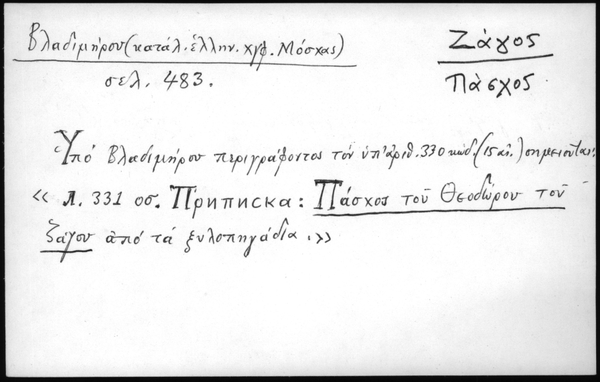 Βλαδιμήρου (κατάλ. ἑλλην. χγφ. Μόσχας)
σελ. 483.
Ζάγος
Πάσχος
Ὑπό Βλαδιμήρου περιγράφοντος τόν ὑπ' ἀριθ. 330 κώδ. (15 αἰ.) σημειοῦται:
« л. 331 об. Приписка: Πάσχος τοῦ Θεοδώρου τοῦ
ζάγου ἀπό τά ξυλοπηγάδια.»